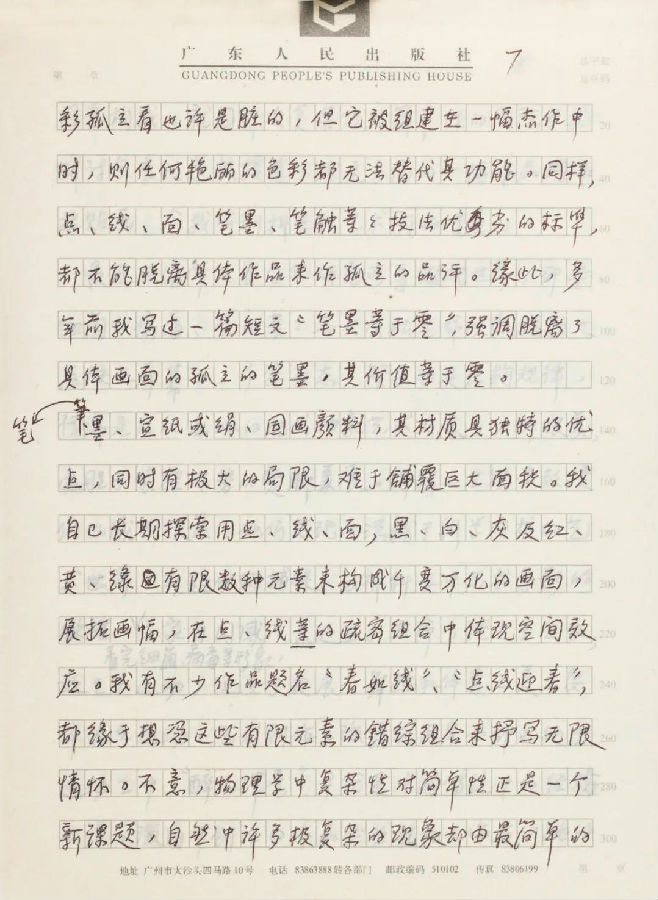 广东人民出版社 7
GUANGDONG PEOPLE'S PUBLISHING HOUSE
彩孤立看也许是脏的，但它被组建在一幅杰作中
时，则任何艳丽的色彩都无法替代其功能。同样，
点、线、面、笔墨、笔触等等技法优劣的标准，
都不能脱离具体作品来作孤立的品评。缘此，多
年前我写过一篇短文“笔墨等于零”，强调脱离了
具体画面的孤立的笔墨，其价值等于零。
笔墨、宣纸或绢、国画颜料，其材质具独特的优
点，同时有极大的局限，难于铺覆巨大面积。我
自己长期探索用点、线、面，黑、白、灰及红、
黄、绿有限数种元素来构成千变万化的画面，
展拓画幅，在点、线等的疏离组合中体现空间效
应。我有不少作品题名“春如线”、“点线迎春”，
都缘于想凭这些有限元素的错综组合来抒写无限
情怀。不意，物理学中复杂性对简单性正是一个
新课题，自然中许多极复杂的现象却由最简单的
地址 广州市大沙头四马路10号 电话 83863888转各部门 邮政编码 510102 传真 83806199